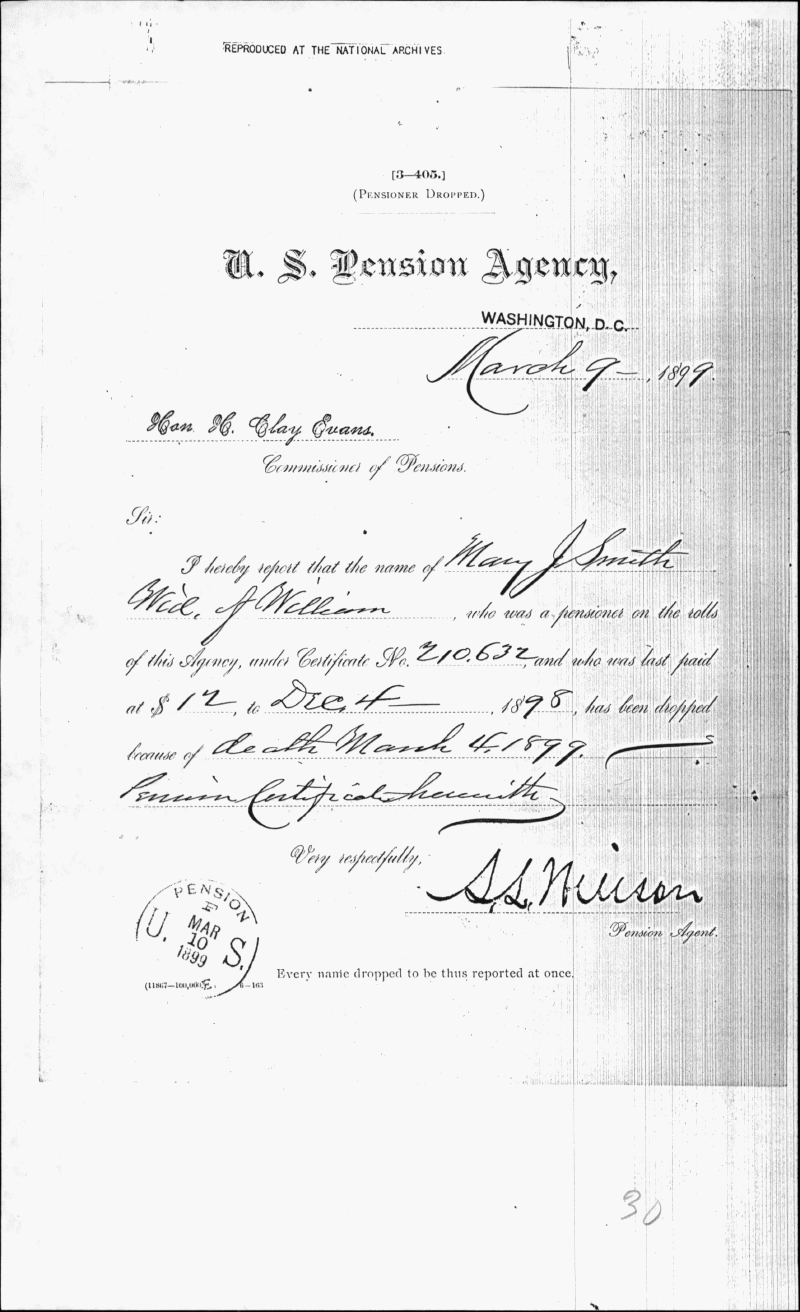 REPRODUCED AT THE NATIONAL ARCHIVES
[3—405.]
(PENSIONER DROPPED.)
U. S. Pension Agency,
WASHINGTON, D. C.
March 9—, 1899.
Hon. H. Clay Evans.
Commissioner of Pensions.
Sir:
I hereby report that the name of Mary J Smith
Wid. of William, who was a pensioner on the rolls
of this Agency, under Certificate No. 210.632, and who was last paid
at $ 12, to Dec. 4—, 1898, has been dropped
because of death March 4, 1899. —
Pension Certificate herewith
Very respectfully,
S. L. Willson
Pension Agent.
PENSION
U. S.
MAR
10
1899
Every name dropped to be thus reported at once.
(11867—100,000.) 6—163
30